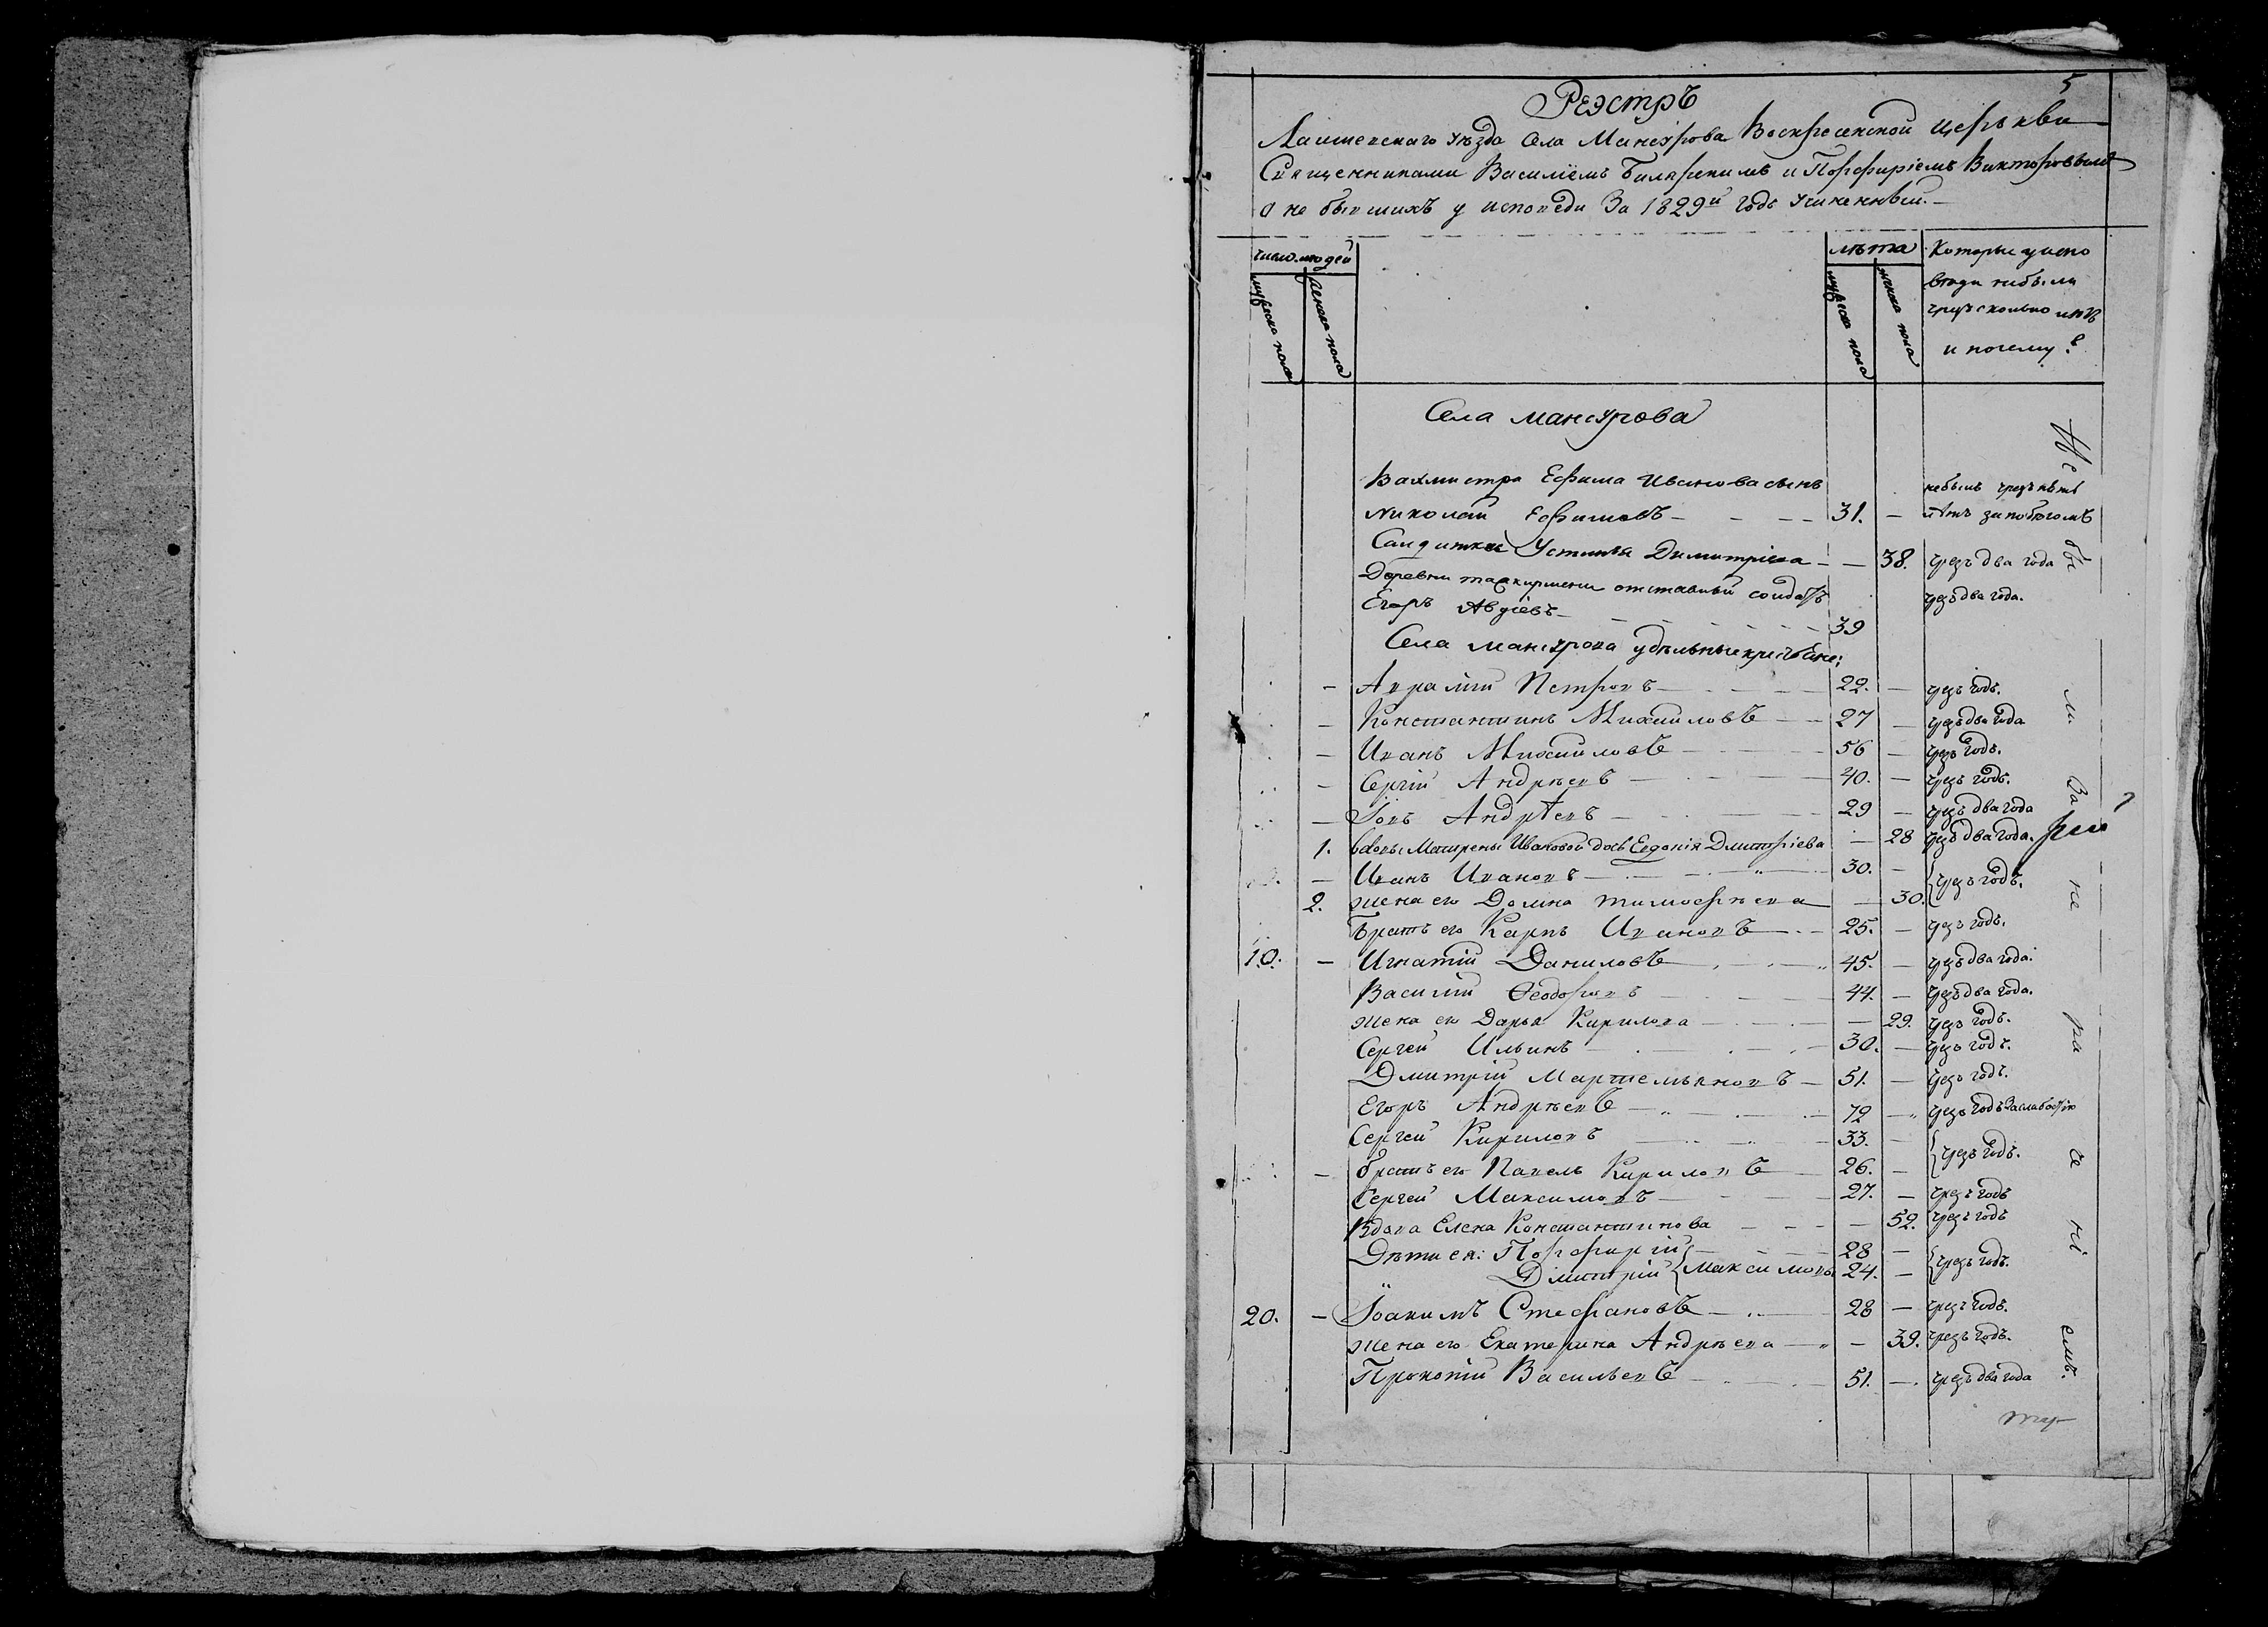 5
Реэстръ
Лаишевскаго уѣзда Села Мансурова Воскресенской церькви
Священниками Василіемъ Билярскимъ и Порфиріемъ Викторовымъ
о не бывшихъ у исповеди За 1829й годъ учиненный.
число людей
лѣта
Которые у испо
веди небыли
чрезъ сколько лѣтъ
и почему?
мужеска пола
женска пола
мужеска пола
женска пола
Села Мансурова
Вахмистра Ефима Иванова сынъ
Николай Ефимовъ 31. — небылъ чрезъ пять
лѣтъ за побѣгомъ
Салдатка Устинья Димитріева — 38. чрезъ два года
Деревни ташкирмени отставный солдатъ
Егоръ Авдіевъ 39 чрезъ два года.
Села мансурова удѣльные крестьяне:
— Аврамій Петровъ 22. — чрезъ годъ.
— Константинъ Михайловъ 27 — чрезъ два года
— Иванъ Михайловъ 56 — чрезъ годъ.
— Сергій Андрѣевъ 40. — чрезъ годъ.
— Іовъ Андрѣевъ 29 — чрезъ два года
1. вдовы Матрены Ивановой дочь Евдокія Дмитріева — 28 чрезъ два года.
— Иванъ Ивановъ 30. —
чрезъ годъ.
2. жена его Домна тимофѣева — 30.
Братъ его Карпъ Ивановъ 25. — чрезъ годъ.
10. — Игнатій Даниловъ 45. — чрезъ два года.
Василій Ѳеодоровъ 44. — чрезъ два года.
жена его Дарья Кирилова — 29. чрезъ годъ.
Сергей Ильинъ 30. — чрезъ годъ.
Дмитрій Мартемьяновъ 51. — чрезъ годъ.
Егоръ Андрѣевъ 72 — чрезъ годъ За слабостію
Сергей Кириловъ 33. —
чрезъ годъ.
— братъ его Павелъ Кириловъ 26. —
Сергей Максимовъ 27. — чрезъ годъ
Вдова Елена Константинова — 52. чрезъ годъ
Дѣти ея: Порфирій 28 —
Максимовы чрезъ годъ.
Димитрій 24. —
20. — Іоакимъ Стефановъ 28 — чрезъ годъ.
жена его Екатерина Андрѣева — 39. чрезъ годъ.
Прокопій Васильевъ 51. — чрезъ два года
Не бы ли За не ра че ні емъ.